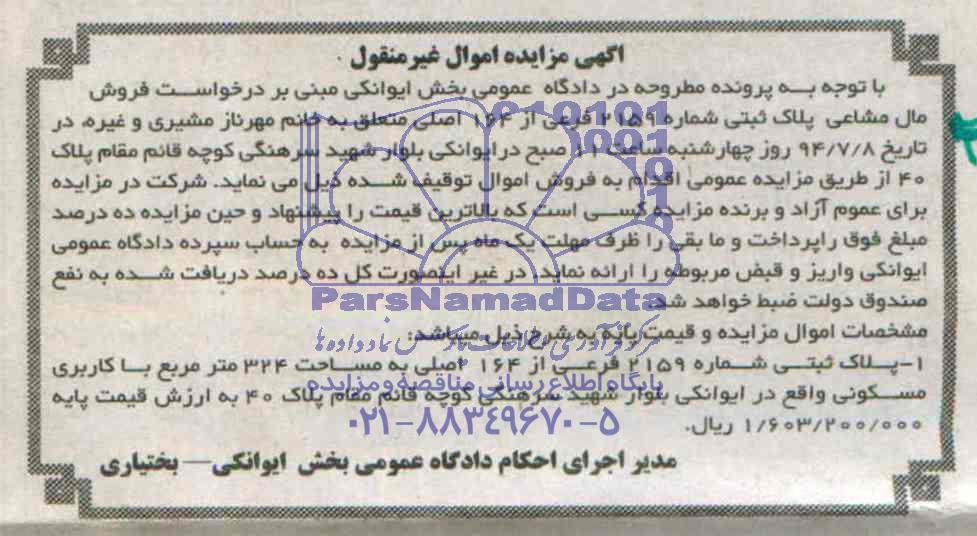 اگهی مزایده اموال غیرمنقول .
با توجه به پرونده مطروحه در دادگاه عمومی بخش ایوانکی مبنی بر درخواست فروش
مال مشاعی پلاک ثبتی شماره ۲۱۵۹ فرعی از ۱۶۴ اصلی متعلق به خانم مهرناز مشیری و غیره، در
تاریخ ۹۴/۷/۸ روز چهارشنبه ساعت ۱۱ صبح در ایوانکی بلوار شهید سرهنگی کوچه قائم مقام پلاک
۴۰ از طریق مزایده عمومی اقدام به فروش اموال توقیف شده ذیل می نماید. شرکت در مزایده
برای عموم آزاد و برنده مزایده کسی است که بالاترین قیمت را پیشنهاد و حین مزایده ده درصد
مبلغ فوق راپرداخت و ما بقی را ظرف مهلت یک ماه پس از مزایده به حساب سپرده دادگاه عمومی
ایوانکی واریز و قبض مربوطه را ارائه نماید. در غیر اینصورت کل ده درصد دریافت شده به نفع
صندوق دولت ضبط خواهد شد.
ParsNamadData
مشخصات اموال مزایده و قیمت پایه به شرح ذیل میباشد:
مرکز فرآوری اطلاعات پارس نماد داده ها
۱-پلاک ثبتی شماره ۲۱۵۹ فرعی از ۱۶۴ اصلی به مساحت ۳۲۴ متر مربع با کاربری
پایگاه اطلاع رسانی مناقصه و مزایده
مسکونی واقع در ایوانکی بلوار شهید سرهنگی کوچه قائم مقام پلاک ۴۰ به ارزش قیمت پایه
۰۲۱-۸۸۳۴۹۶۷۰-۵
۱/۶۰۳/۲۰۰/۰۰۰ ریال.
مدیر اجرای احکام دادگاه عمومی بخش ایوانکی— بختیاری